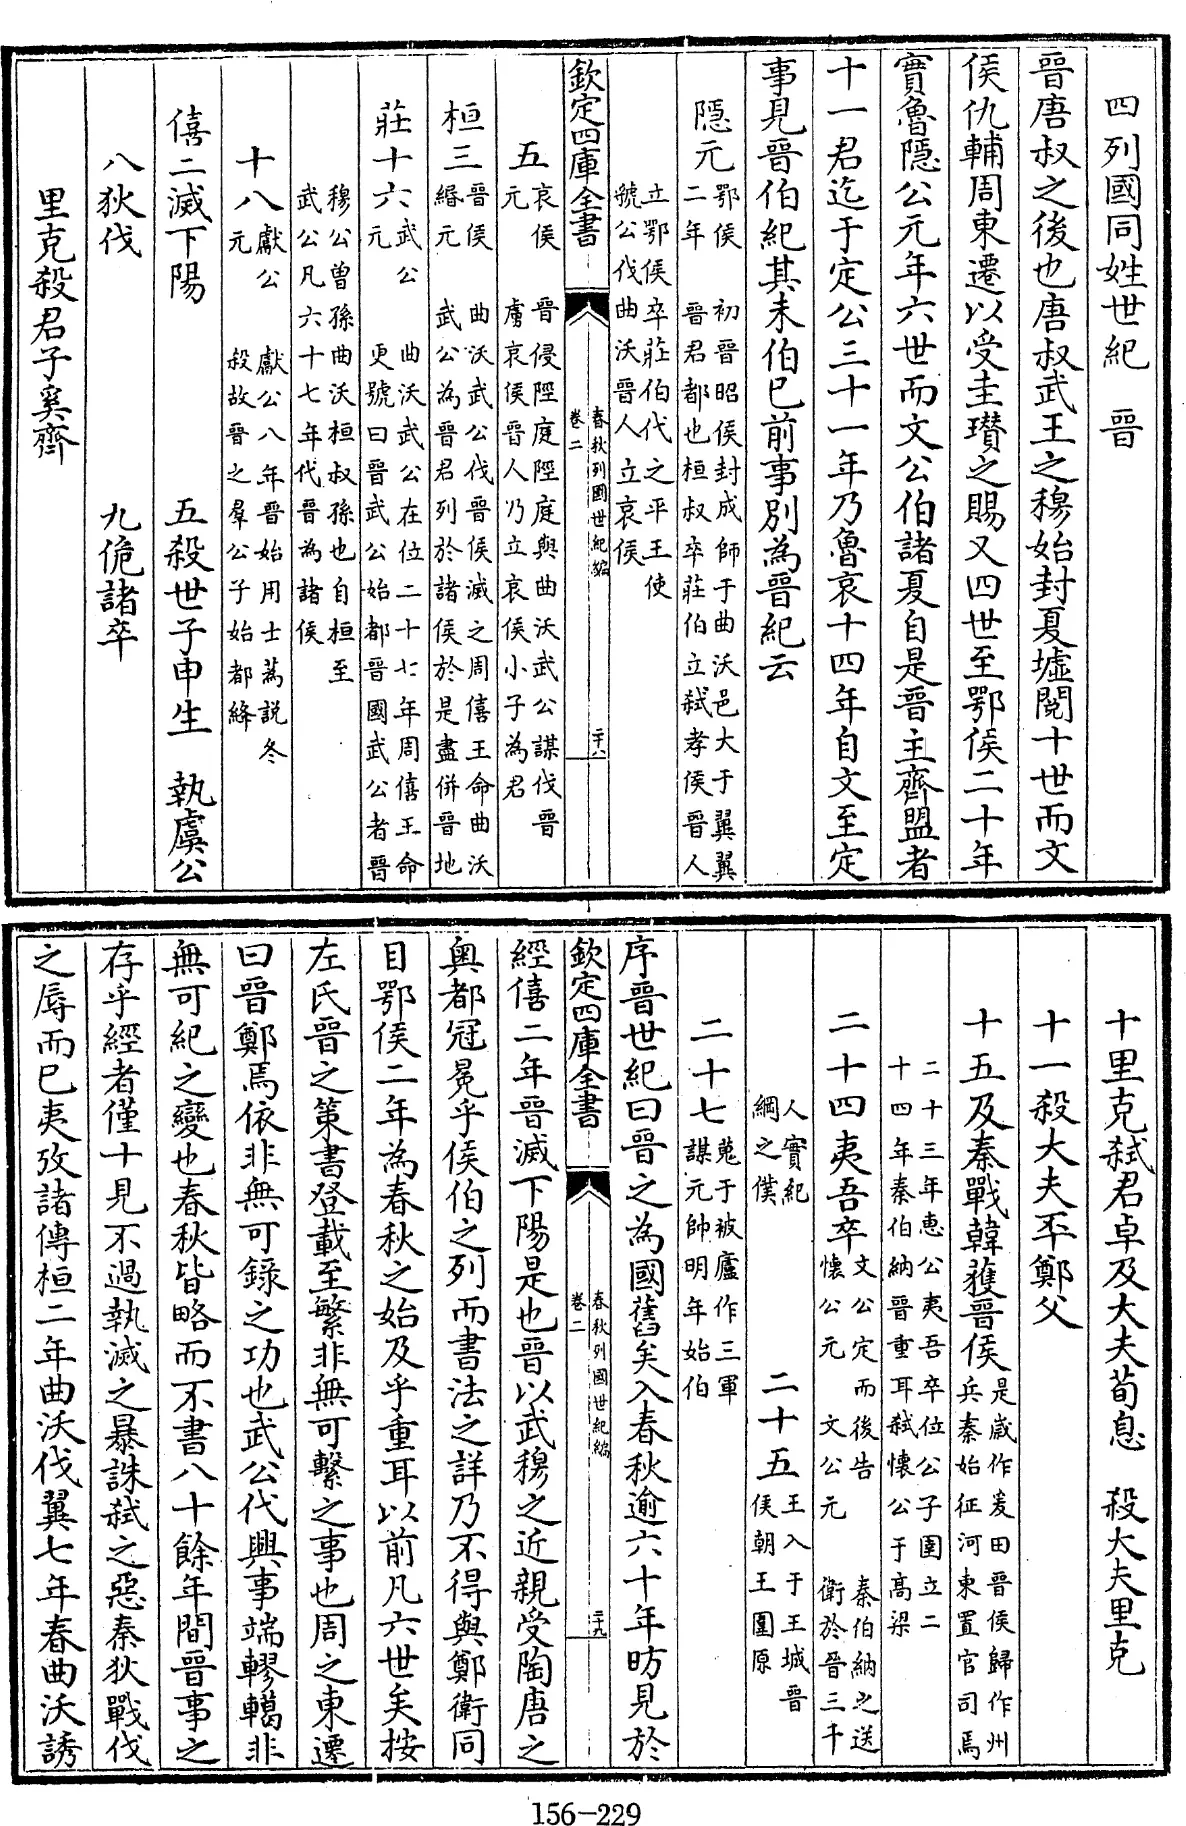 四列國同姓世紀 晉
晉唐叔之後也唐叔武王之穆始封夏墟閱十世而文
侯仇輔周東遷以受圭瓚之賜又四世至鄂侯二十年
實魯隱公元年六世而文公伯諸夏自是晉主齊盟者
十一君迄于定公三十一年乃魯哀十四年自文至定
事見晉伯紀其未伯已前事別為晉紀云
隱元 鄂侯二年 初晉昭侯封成師于曲沃邑大于翼翼晉君都也桓叔卒莊伯立弑孝侯晉人
立鄂侯卒莊伯代之平王使虢公伐曲沃晉人立哀侯
欽定四庫全書 春秋列國世紀編 卷二 二十八
五 哀侯元 晉侵陘庭陘庭與曲沃武公謀伐晉虜哀侯晉人乃立哀侯小子為君
桓三 晉侯緡元 曲沃武公伐晉侯滅之周僖王命曲沃武公為晉君列於諸侯於是盡併晉地
莊十六 武公元 曲沃武公在位二十七年周僖王命更號曰晉武公始都晉國武公者晉
穆公曽孫曲沃桓叔孫也自桓至武公凡六十七年代晉為諸侯
十八 獻公元 獻公八年晉始用士蒍説冬殺故晉之羣公子始都絳
僖二滅下陽 五殺世子申生 執虞公
八狄伐 九佹諸卒
里克殺君子奚齊
十里克弑君卓及大夫荀息 殺大夫里克
十一殺大夫㔻鄭父
十五及秦戰韓獲晉侯 是歲作爰田晉侯歸作州兵秦始征河東置官司焉
二十三年惠公夷吾卒位公子圉立二十四年秦伯納晉重耳弑懷公于高梁
二十四夷吾卒 文公定而後告懷公元 文公元 秦伯納之送衛於晉三千
人實紀綱之僕 二十五 王入于王城晉侯朝王圍原
二十七 蒐于被廬作三軍謀元帥明年始伯
序晉世紀曰晉之為國舊矣入春秋逾六十年昉見於
欽定四庫全書 春秋列國世紀編 卷二 二十九
經僖二年晉滅下陽是也晉以武穆之近親受陶唐之
奥都冠冕乎侯伯之列而書法之詳乃不得與鄭衛同
目鄂侯二年為春秋之始及乎重耳以前凡六世矣按
左氏晉之策書登載至繁非無可繫之事也周之東遷
曰晉鄭焉依非無可錄之功也武公代興事端轇轕非
無可紀之變也春秋皆略而不書八十餘年間晉事之
存乎經者僅十見不過執滅之暴誅弑之惡秦狄戰伐
之辱而已夷攷諸傳桓二年曲沃伐翼七年春曲沃誘
156-229